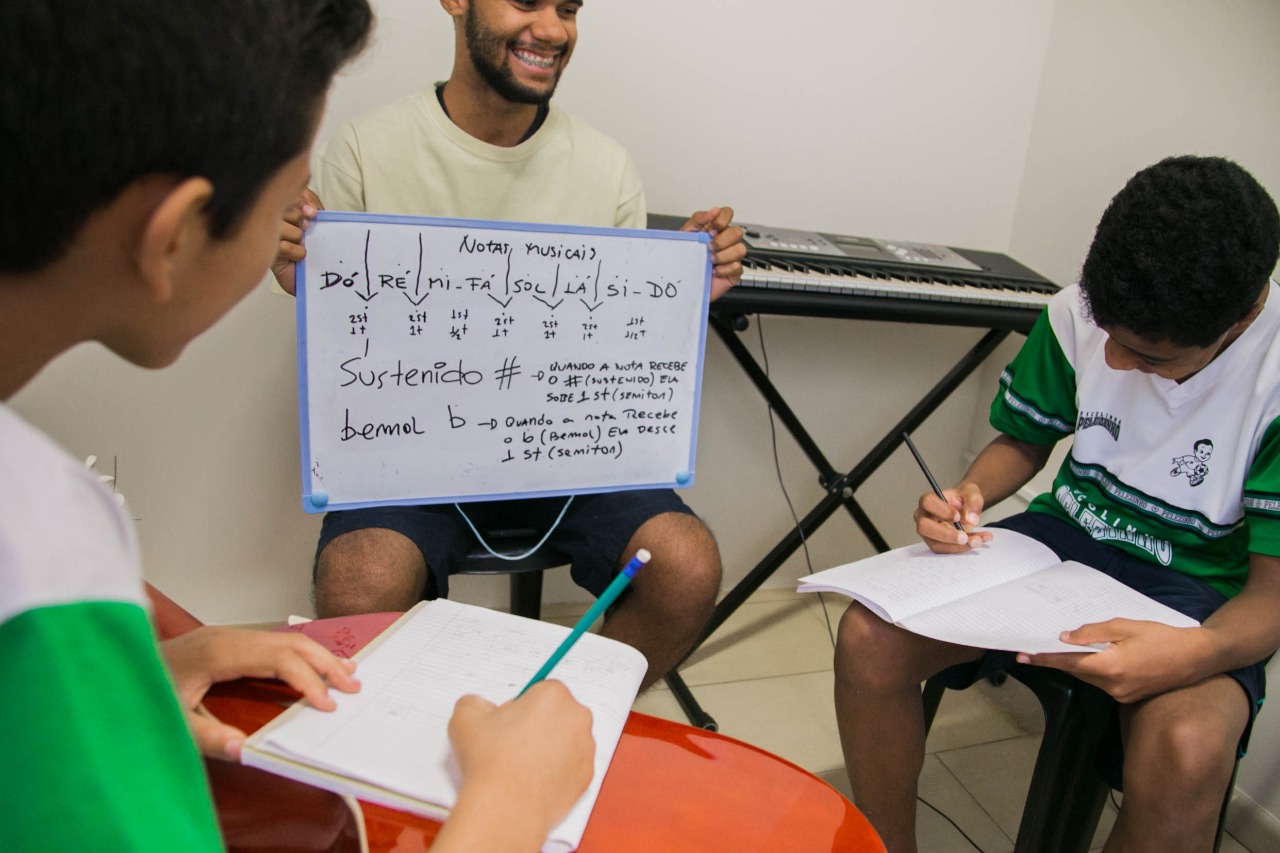 Notas musicais
DÓ RÉ MI - FÁ SOL LÁ SI - DÓ
2st 2st 1st 2st 2st 2st 1st
1t 1t ½t 1t 1t 1t 1/2t
Sustenido # → QUANDO A NOTA RECEBE
O # (SUSTENIDO) ELA
SOBE 1 st (SEMITON)
bemol b → Quando a nota Recebe
o b (Bemol) Ela Desce
1 st (semiton)
PELEZINHO